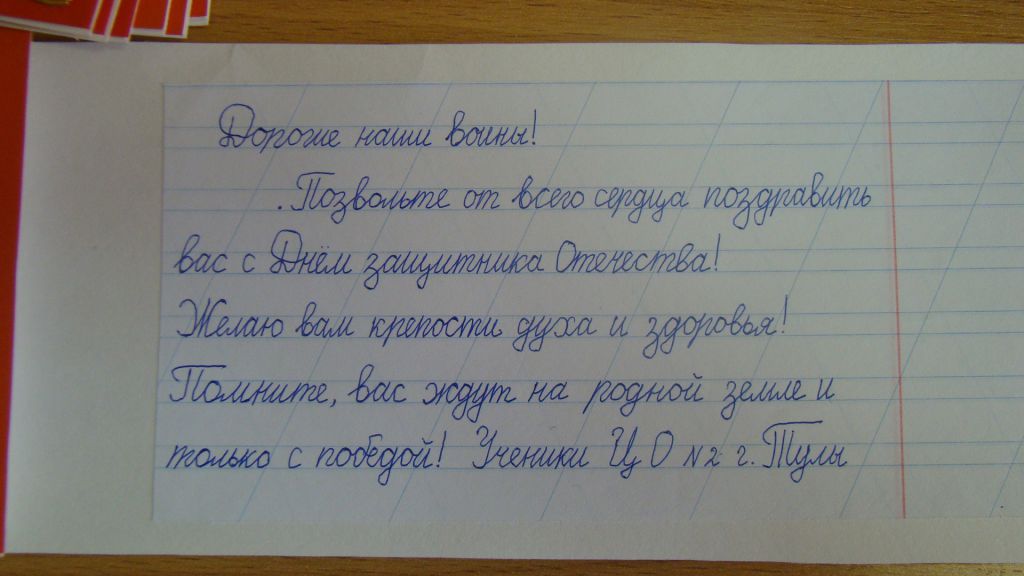 Дороже наши воины!
. Позвольте от всего сердца поздравить
вас с Днём защитника Отечества!
Желаю вам крепости духа и здоровья!
Помните, вас ждут на родной земле и
только с победой! Ученики ЦО №2 г. Тулы